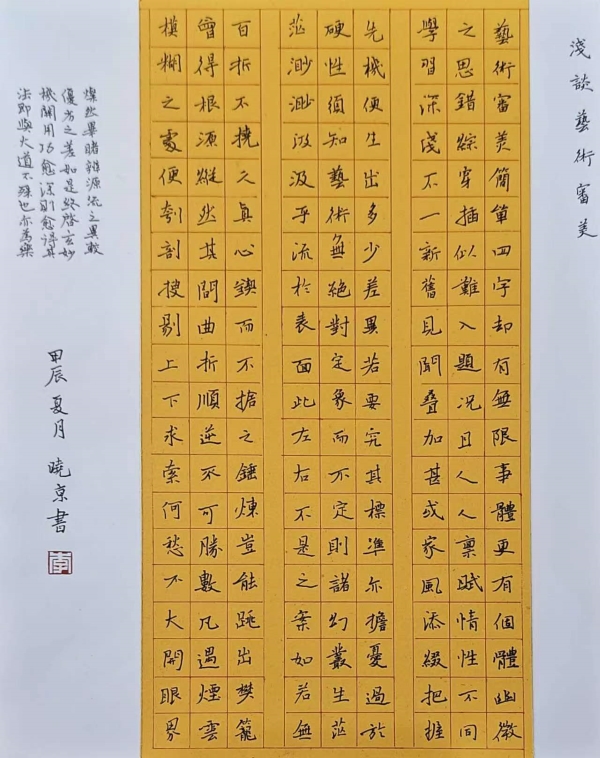 淺談藝術審美
藝術審美簡單四字却有無限事體更有個體幽微
之思錯綜穿插似難入題况且人人禀賦情性不同
學習深淺不一新舊見聞疊加甚或家風添綴把推
先機便生出多少差異若要究其標準亦擔憂過於
硬性須知藝術無絕對定象而不定則諸幻叢生茫
茫渺渺汲汲乎流於表面此左右不是之案如若無
百折不撓之真心鍥而不捨之錘煉豈能跳出樊籠
曾得根源縱然其間曲折順逆不可勝數凡遇煙雲
模糊之處便刳剖搜剔上下求索何愁不大開眼界
燦然畢睹辨源流之異數
優劣之差如是終啓玄妙
機關用巧愈深則愈得其
法即與大道不殊也亦為樂
甲辰夏月 曉京書